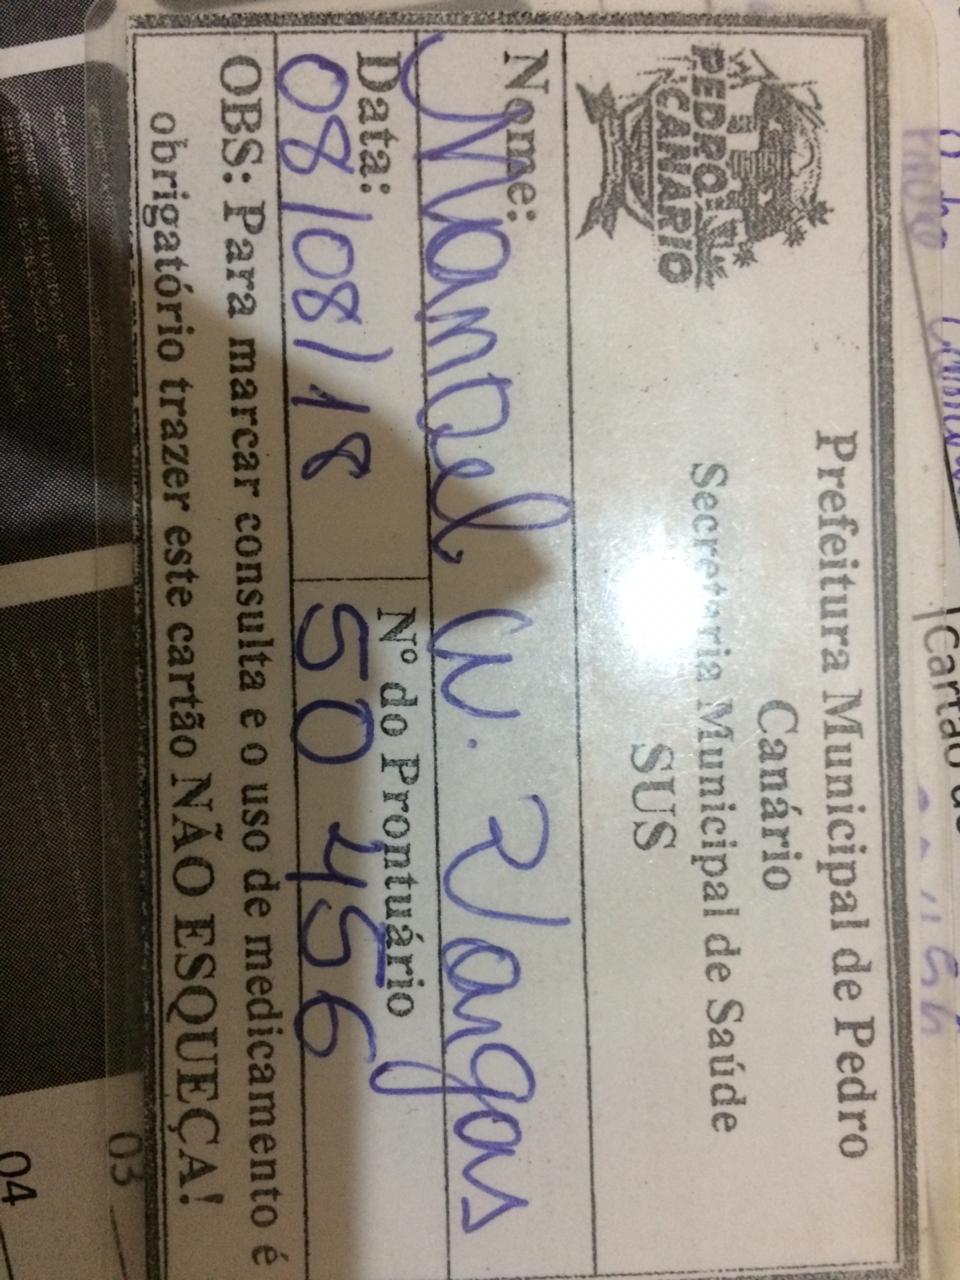 PEDRO
CANARIO
Prefeitura Municipal de Pedro
Canário
Secretaria Municipal de Saúde
SUS
Nome:
Manoel W. Vargas
Data:
08/08/18
Nº do Prontuário
50456
OBS: Para marcar consulta e o uso de medicamento é
obrigatório trazer este cartão NÃO ESQUEÇA!
Cartão de
03
04